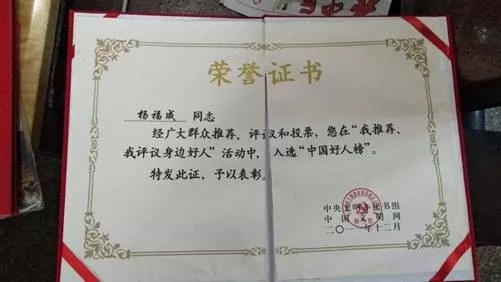 荣誉证书
杨福成 同志
经广大群众推荐、评议和投票，您在“我推荐、
我评议身边好人”活动中，入选“中国好人榜”。
特发此证，予以表彰。
中央文明办秘书组
中国文明网
二〇一一年十二月